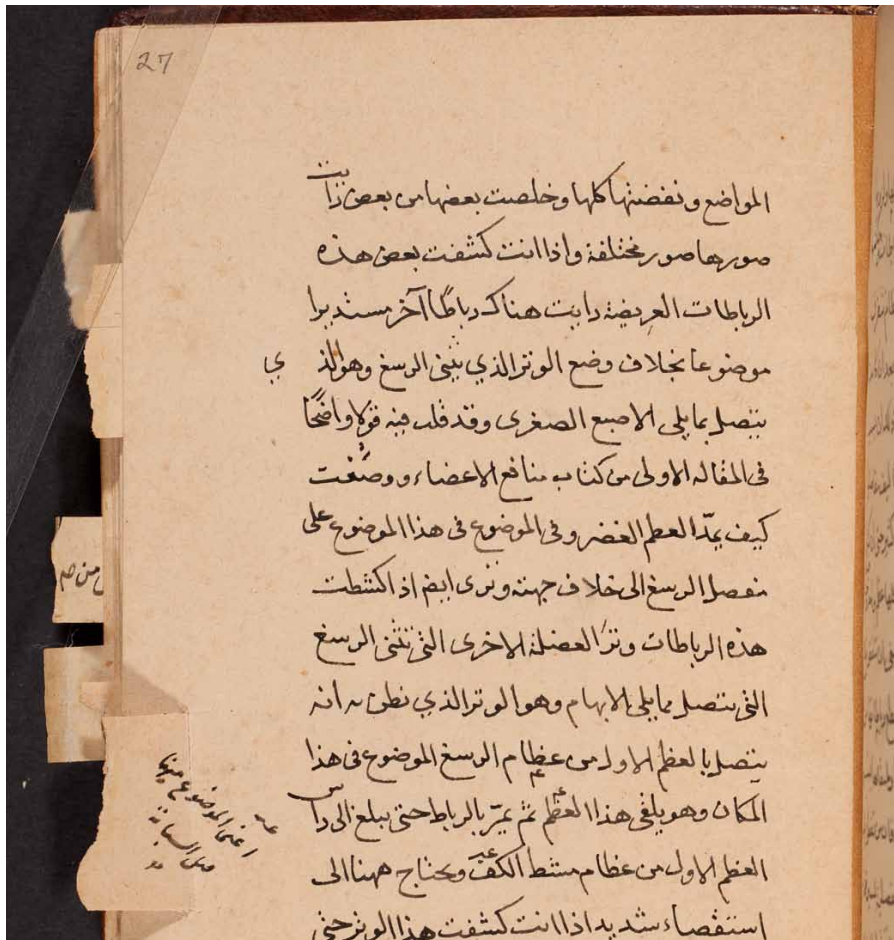 27
المواضع ونفضتها كلها وخلصت بعضها من بعض رايت
صورها صور مختلفة واذا انت كشفت بعض هذه
الرباطات العريضة رايت هناك رباطًا آخر مستديرا
موضوعا بخلاف وضع الوتر الذي يثنى الرسغ وهو الذي
يتصل بما يلى الاصبع الصغرى وقد قلت فيه قولا واضحًا
فى المقاله الاولى من كتاب منافع الاعضاء ووصفت
كيف يمدّ العظم الغضروفى الموضوع فى هذا الموضوع على
مفصل الرسغ الى خلاف جهته وترى ايضا اذا كشطت
هذه الرباطات وترَ العضلة الاخرى التى تثنى الرسغ
التى تتصل مما يلى الابهام وهو الوتر الذي نظن به انه
يتصل بالعظم الاول من عظام الرسغ الموضوع فى هذا
المكان وهو يلقى هذا العظم ثم يمرّ بالرباط حتى يبلغ الى راس
العظم الاول من عظام مشط الكف ويحتاج ههنا الى
استقصاء شديد اذا انت كشفت هذا الوتر حتى
اعنى الموضوع منها
قبل السبابة